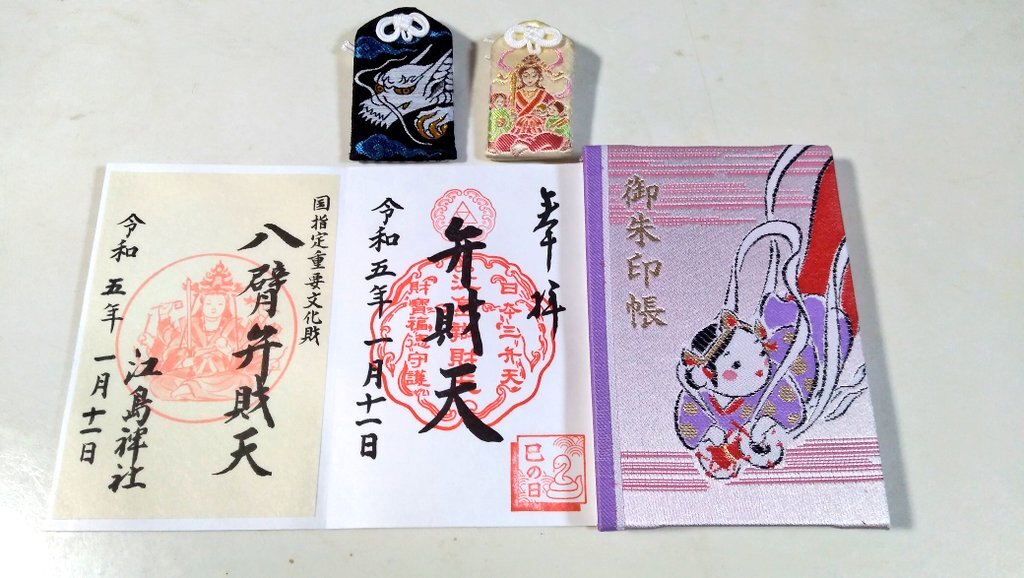 奉拝
弁財天
令和五年一月十一日
日本三弁天
財寶福徳守護
巳の日
国指定重要文化財
八臂弁財天
江島神社
令和五年一月十一日
御朱印帳